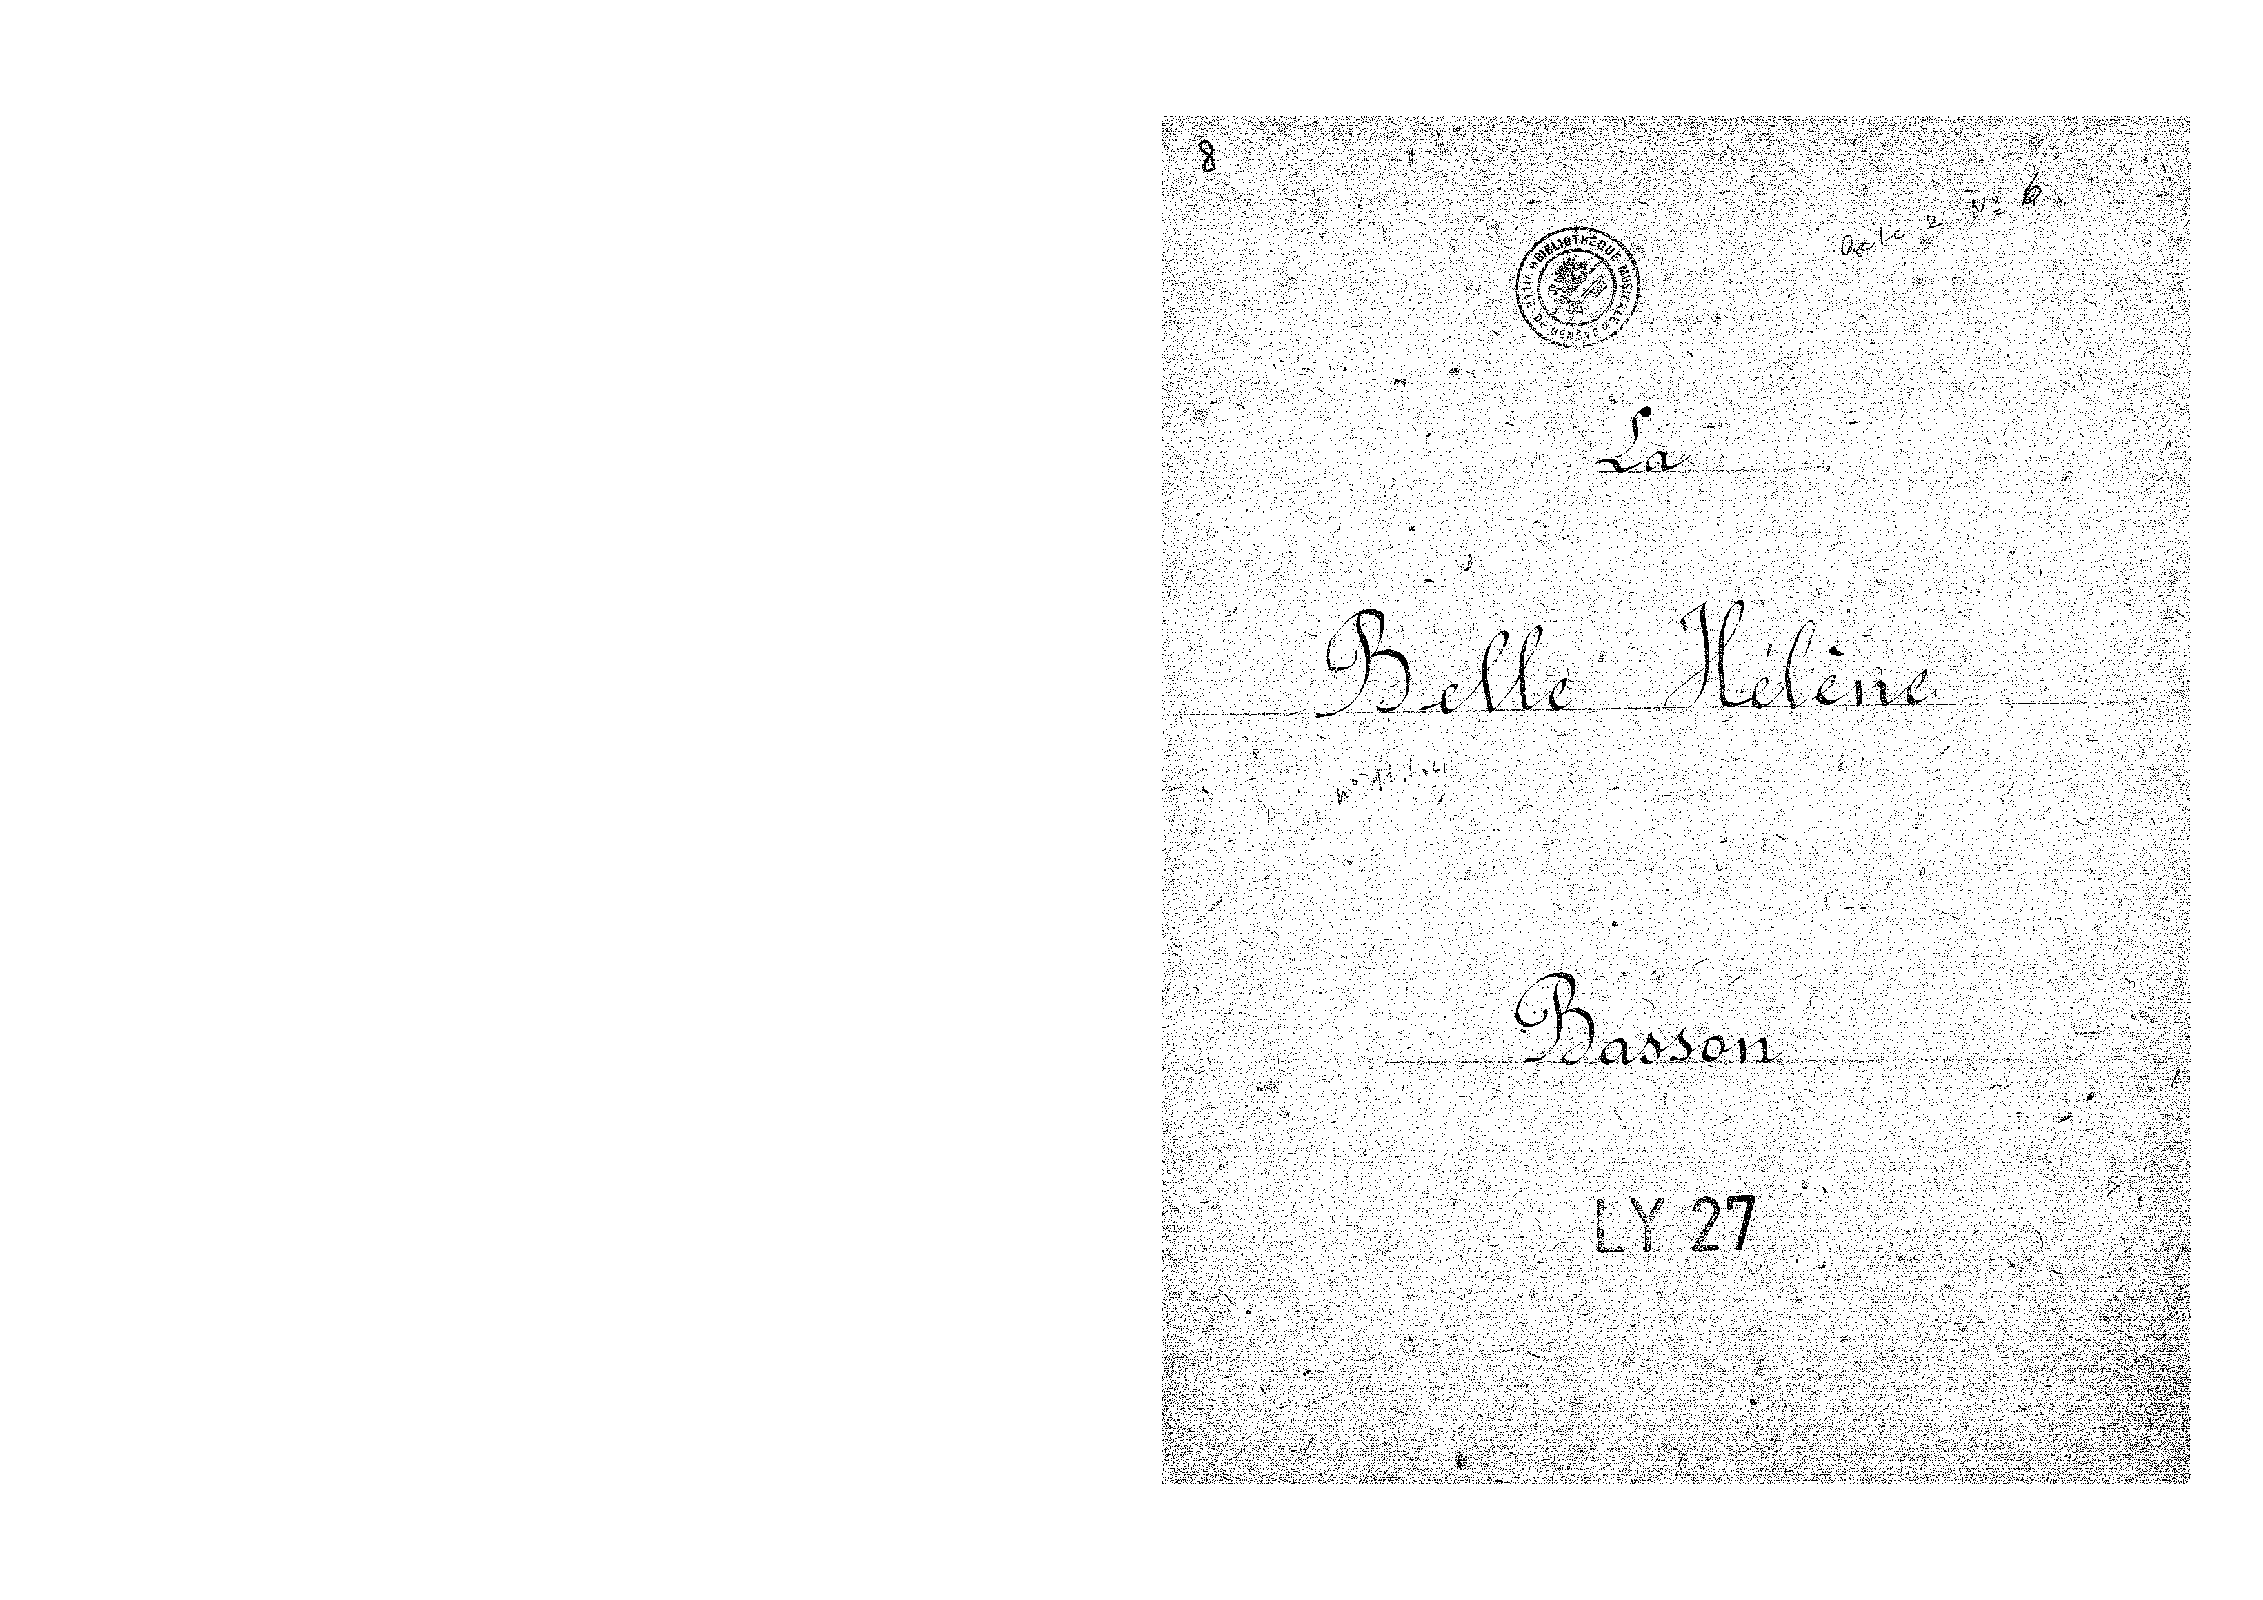 8
Acte 2 Nº 6
BIBLIOTHÈQUE MUSICALE
La
Belle Hélène
Basson
LY 27